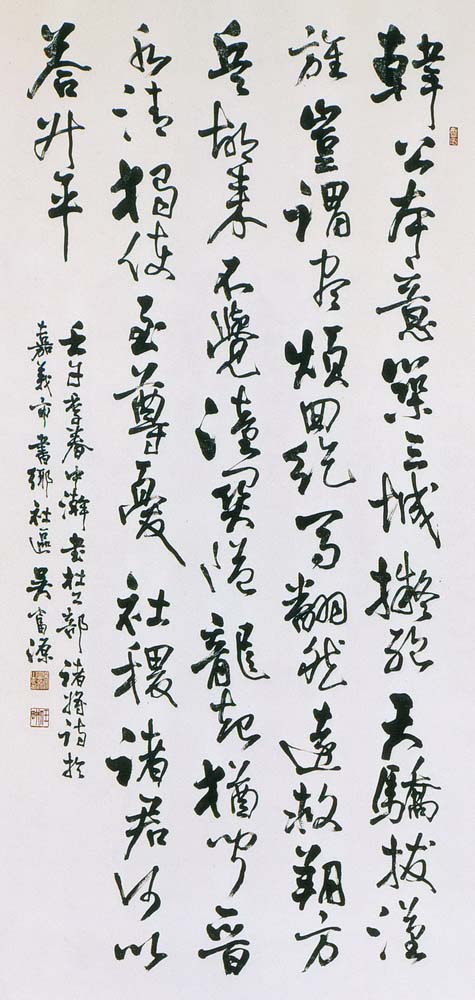 韓公本意築三城擬絕天驕拔漢
旌豈謂盡煩回紇馬翻然遠救朔方
兵胡來不覺潼關隘龍起猶聞晉
水清獨使至尊憂社稷諸君何以
答升平
壬午季春中澣書杜工部諸將詩於
嘉義市書鄉社區吳富源